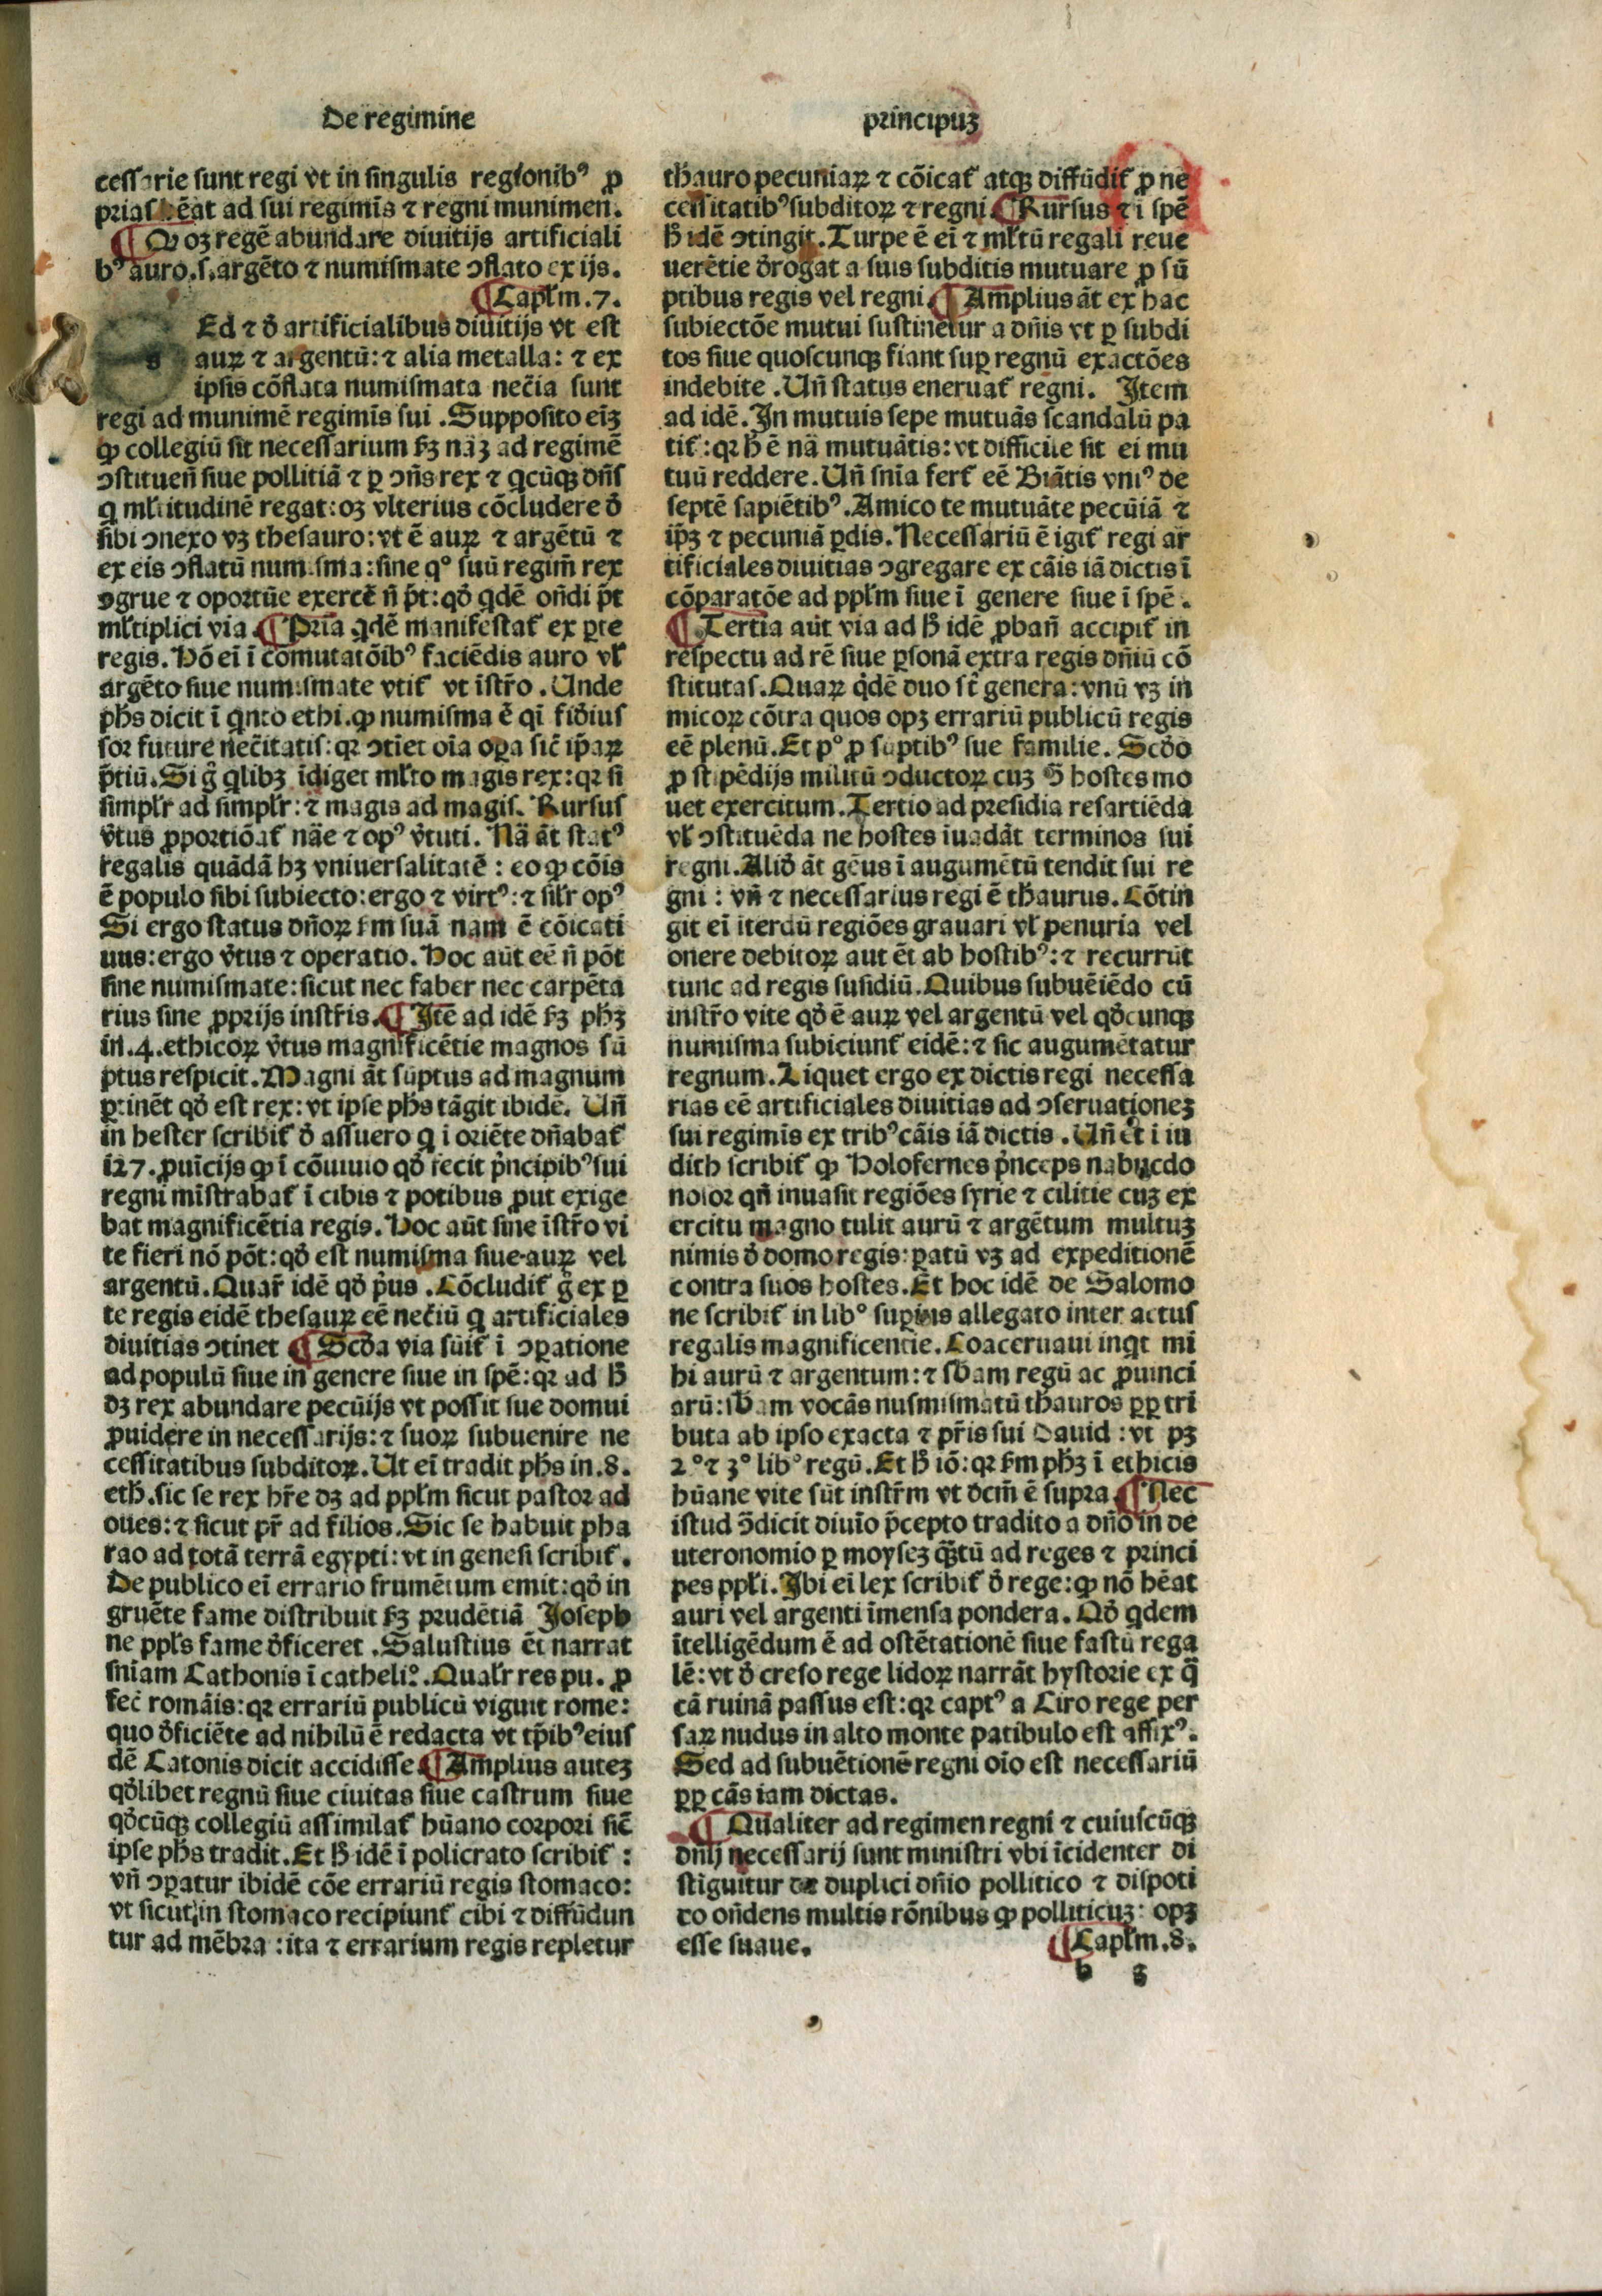 De regimine
principuꝫ
cessarie sunt regi vt in singulis regionibꝰ ꝓ
prias hẽat ad sui regimĩs ⁊ regni munimen.
¶ Q oꝫ regẽ abundare diuitijs artificiali
bꝰ auro.s.argẽto ⁊ numismate ↄflato ex ijs.
¶ Capl̃m.7.
SEd ⁊ đ artificialibus diuitijs vt est
auꝝ ⁊ argentũ: ⁊ alia metalla: ⁊ ex
ipsis cõflata numismata nec̃ia sunt
regi ad munimẽ regimĩs sui .Supposito eĩꝫ
ꝙ collegiũ sit necessarium ẜꝫ nãꝫ ad regimẽ
ↄstituen̄ siue pollitiã ⁊ ꝑ ↄñs rex ⁊ q̇cũqꝫ dñs
q̇ ml̃titudinẽ regat: oꝫ vlterius cõcludere đ
sibi ↄnexo vꝫ thesauro: vt ẽ auꝝ ⁊ argẽtũ ⁊
ex eis ↄflatũ numisma: sine qº suũ regim̃ rex
ↄgrue ⁊ oportũe exercẽ ñ p̃t: qđ q̇dẽ on̄di p̃t
ml̃tiplici via .¶ Pria q̇dẽ manifestaꝷ ex ꝑte
regis. Hõ eĩ ĩ cõmutatõibꝰ faciẽdis auro vl̃
argẽto siue numismate vtiꝷ vt ĩstr̃o .Unde
ph̃s dicit ĩ q̇nto ethi.ꝙ numisma ẽ q̃i fiđius
sor future nec̃itatis: qꝛ ↄtĩet oĩa oꝑa sic̃ ip̃aꝝ
p̃tiũ .Si g̊ q̇libꝫ ĩdiget ml̃to magis rex: qꝛ si
simpl̃r ad simpl̃r: ⁊ magis ad magis. Rursus
v̉tus ꝓportiõaꝷ nãe ⁊ opꝰ v̉tuti. Nã ãt statꝰ
regalis quãdã hꝫ vniuersalitatẽ : eo ꝙ cõis
ẽ populo sibi subiecto: ergo ⁊ virtꝰ: ⁊ sil̃r opꝰ
Si ergo status dñoꝝ ẜm suã nam ẽ cõicati
uus: ergo v̉tus ⁊ operatio. Hoc aũt eẽ ñ põt
sine numismate: sicut nec faber nec carpẽta
rius sine ꝓprijs instr̃is.¶ Itẽ ad idẽ ẜꝫ ph̃ꝫ
in.4.ethicoꝝ v̉tus magnificẽtie magnos sũ
ptus respicit. Magni ãt sũptus ad magnum
ꝑtinẽt qđ est rex: vt ipse ph̃s tãgit ibidẽ. Uñ
in hester scribiꝷ đ assuero q̇ i oriẽte dñabaꝷ
127. ꝓuĩcijs ꝙ ĩ cõuiuio qđ fecit p̉ncipibꝰ sui
regni mĩstrabaꝷ ĩ cibis ⁊ potibus ꝓut exige
bat magnificẽtia regis. Hoc aũt sine ĩstr̃o vi
te fieri nõ põt: qđ est numisma siue auꝝ vel
argentũ. Quar̃ idẽ qđ p̉us . Cõcludiꝷ g̊ ex ꝑ
te regis eidẽ thesauꝝ eẽ nec̃iũ q̇ artificiales
diuitias ↄtinet ¶ Scđa via sũiꝷ ĩ ↄꝑatione
ad populũ siue in genere siue in spẽ: qꝛ ad h̃
dꝫ rex abundare pecũijs vt possit sue domui
ꝓuidere in necessarijs: ⁊ suoꝝ subuenire ne
cessitatibus subditoꝝ. Ut eĩ tradit ph̃s in.8.
eth̃.sic se rex hr̃e dꝫ ad ppl̃m sicut pastor ad
oues: ⁊ sicut pr̃ ad filios. Sic se habuit pha
rao ad totã terrã egypti: vt in genesi scribiꝷ.
De publico eĩ errario frumẽtum emit: qđ in
gruẽte fame distribuit ẜꝫ prudẽtiã Joseph
ne ppl̃s fame đficeret .Salustius ẽt narrat
snĩam Cathonis ĩ catheliº. Qual̃r res pu. ꝓ
fec̃ romãis: qꝛ errariũ publicũ viguit rome:
quo đficiẽte ad nihilũ ẽ redacta vt tp̃ibꝰ eius
dẽ Catonis dicit accidisse .¶ Amplius auteꝫ
qđlibet regnũ siue ciuitas siue castrum siue
qđcũqꝫ collegiũ assimilaꝷ hũano corpori sic̃
ipse ph̃s tradit. Et h̃ idẽ ĩ policrato scribiꝷ :
vñ ↄꝑatur ibidẽ cõe errariũ regis stomaco:
vt sicut in stomaco recipiunꝷ cibi ⁊ diffũdun
tur ad mẽbra : ita ⁊ errarium regis repletur
th̃auro pecuniaꝝ ⁊ cõicaꝷ atqꝫ diffũdiꝷ ꝓ ne
cessitatibꝰ subditoꝝ ⁊ regni .¶ Rursus ⁊ i spẽ
h̃ idẽ ↄtingit. Turpe ẽ eĩ ⁊ ml̃tũ regali reue
uerẽtie đrogat a suis subditis mutuare ꝓ sũ
ptibus regis vel regni .¶ Amplius ãt ex hac
subiectõe mutui sustinetur a dñis vt ꝑ subdi
tos siue quoscunqꝫ fiant suꝑ regnũ exactões
indebite .Uñ status eneruaꝷ regni. Item
ad idẽ. In mutuis sepe mutuãs scandalũ pa
tiꝷ: qꝛ h̃ ẽ nã mutuãtis: vt difficile sit ei mu
tuũ reddere. Uñ snĩa ferꝷ eẽ Biãtis vniꝰ de
septẽ sapiẽtibꝰ. Amico te mutuãte pecũiã ⁊
ip̃ꝫ ⁊ pecuniã ꝑdis. Necessariũ ẽ igiꝷ regi ar
tificiales diuitias ↄgregare ex cãis iã dictis ĩ
cõparatõe ad ppl̃m siue ĩ genere siue ĩ spẽ.
¶ Tertia aũt via ad h̃ idẽ ꝓban̄ accipiꝷ in
respectu ad rẽ siue ꝑsonã extra regis dñiũ cõ
stitutas. Quaꝝ q̇dẽ duo st̃ genera: vnũ vꝫ in
micoꝝ cõtra quos opꝫ errariũ publicũ regis
eẽ plenũ. Et pº ꝓ sũptibꝰ sue familie. Scđo
ꝓ stipẽdijs militũ ↄductoꝝ cuꝫ ↄ̃ hostes mo
uet exercitum. Tertio ad presidia resartiẽda
vl̃ ↄstituẽda ne hostes iuadãt terminos sui
regni. Aliđ ãt gẽus ĩ augumẽtũ tendit sui re
gni : vñ ⁊ necessarius regi ẽ th̃aurus. Cõtin
git eĩ iterdũ regiões grauari vl̃ penuria vel
onere debitoꝝ aut ẽt ab hostibꝰ: ⁊ recurrũt
tunc ad regis susidiũ. Quibus subuẽiẽdo cũ
instr̃o vite qđ ẽ auꝝ vel argentũ vel qđcunqꝫ
numisma subiciunꝷ eidẽ: ⁊ sic augumẽtatur
regnum. Liquet ergo ex dictis regi necessa
rias eẽ artificiales diuitias ad ↄseruationeꝫ
sui regimĩs ex tribꝰ cãis iã dictis .Uñ ẽt i iu
dith scribiꝷ ꝙ Holofernes p̉nceps nabucdo
nosor qñ inuasit regiões syrie ⁊ cilitie cuꝫ ex
ercitu magno tulit aurũ ⁊ argẽtum multuꝫ
nimis đ domo regis: ꝑatũ vꝫ ad expeditionẽ
contra suos hostes. Et hoc idẽ de Salomo
ne scribiꝷ in libº suꝑius allegato inter actus
regalis magnificentie. Coaceruaui inq̇t mi
hi aurũ ⁊ argentum: ⁊ sb̃am regũ ac ꝓuinci
arũ: sb̃am vocãs nusmismatũ th̃auros ꝑꝑ tri
buta ab ipso exacta ⁊ pr̃is sui Dauid : vt pꝫ
2º ⁊ 3º libº regũ. Et h̃ iõ: qꝛ ẜm ph̃ꝫ ĩ ethicis
hũane vite sũt instr̃m vt dc̃m ẽ supra .¶ Nec
istud ↄ̃dicit diuĩo p̃cepto tradito a dño in de
uteronomio ꝑ moyseꝫ q̃ntũ ad reges ⁊ princi
pes ppl̃i. Ibi eĩ lex scribiꝷ đ rege: ꝙ nõ hẽat
auri vel argenti ĩmensa pondera. Qđ q̇dem
ĩtelligẽdum ẽ ad ostẽtationẽ siue fastũ rega
lẽ: vt đ creso rege lidoꝝ narrãt hystorie ex q̃
cã ruinã passus est: qꝛ captꝰ a Ciro rege per
saꝝ nudus in alto monte patibulo est affixꝰ.
Sed ad subuẽtionẽ regni oĩo est necessariũ
ꝑꝑ cãs iam dictas.
¶ Qualiter ad regimen regni ⁊ cuiuscũqꝫ
dñij necessarij sunt ministri vbi ĩcidenter di
stĩguitur de duplici dñio pollitico ⁊ dispoti
co oñdens multis rõnibus ꝙ polliticuꝫ: opꝫ
esse suaue. ¶ Capl̃m.8.
b 3